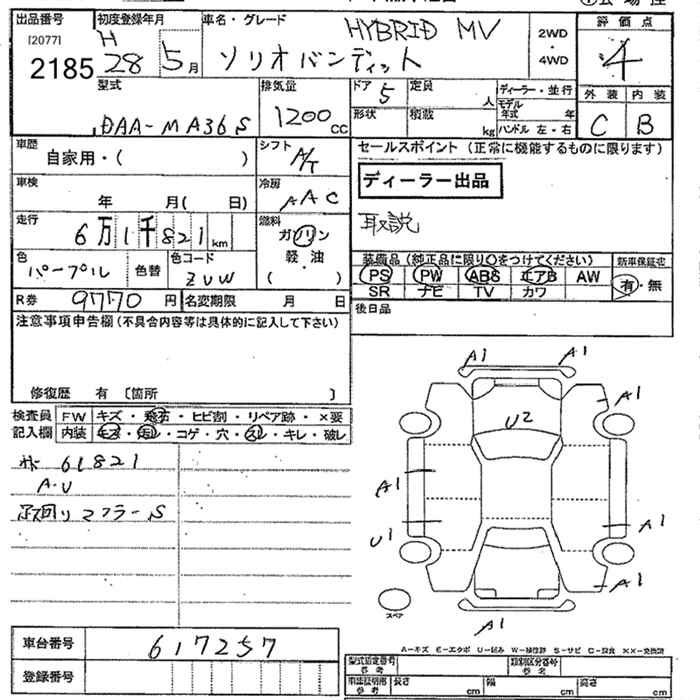 出品番号 初度登録年月 車名・グレード HYBRID MV 2WD・4WD 評価点
[2077]
2185 H28 5月 ソリオバンディット 4
型式 DAA-MA36S 排気量 1200cc ドア 5 定員 人 ディーラー・並行
形状 積載 kg モデル年式 年 ハンドル 左・右
外装 内装
C B
車歴 自家用・( ) シフト A/T
セールスポイント (正常に機能するものに限ります)
ディーラー出品
取説
車検 年 月( 日) 冷房 AAC
走行 6万1千821km 燃料 ガソリン
軽・油
( )
色 パープル 色替 色コード ZUW
装備品 (純正品に限り○をつけてください) 新車保証書
PS PW ABS エアB AW 有・無
SR ナビ TV カワ
R券 9770円 名変期限 月 日
後日品
注意事項申告欄 (不具合内容等は具体的に記入して下さい)
修復歴 有 〔箇所 〕
検査員 FW キズ・飛石・ヒビ割・リペア跡・×要
記入欄 内装 キズ・汚レ・コゲ・穴・スレ・キレ・破レ
61821
A・U
下回りマフラーS
A1 A1
A1
U2
A1
U1 A1
A1
スペア
A1
車台番号 617257
登録番号
A-キズ E-エクボ U-凹み W-補修跡 S-サビ C-腐食 XX-交換済
型式指定番号 参考 類別区分番号 参考
車認証明用 参考 長さ cm 幅 cm 高さ cm